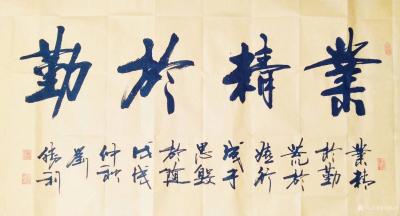 業精於勤
業精
於勤
荒於
嬉行
成于
思毀
於随
戊戌
仲秋
劉
利